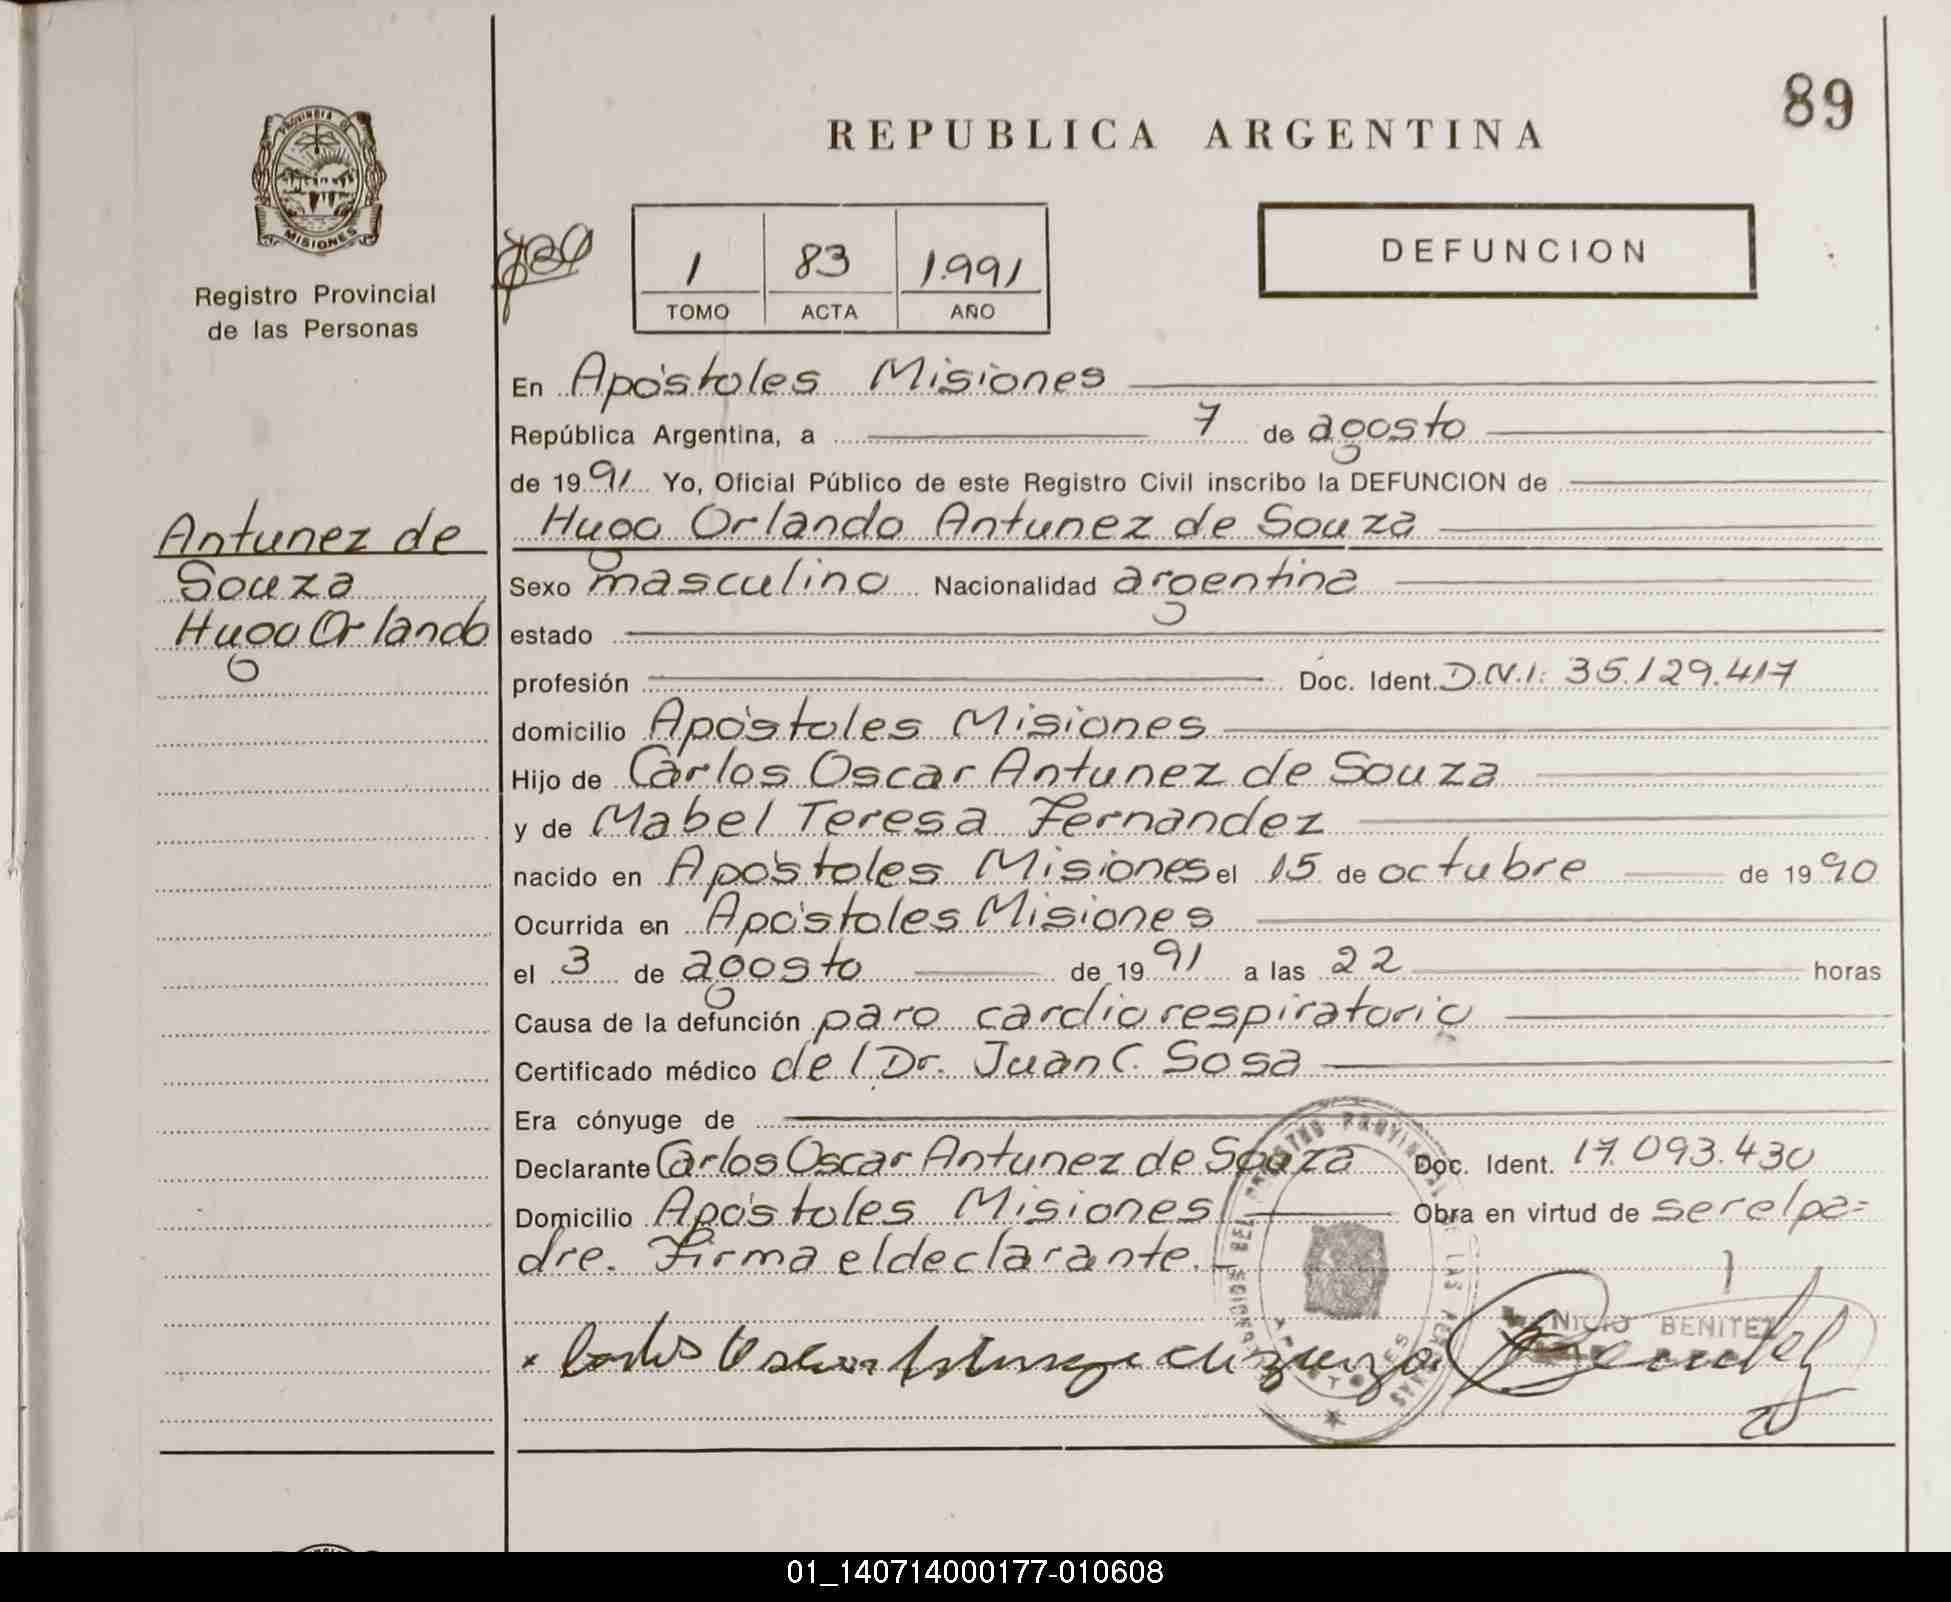 89
REPUBLICA ARGENTINA
PROVINCIA DE
MISIONES
Registro Provincial
de las Personas
1 83 1.991
TOMO ACTA AÑO
DEFUNCION
En Apóstoles Misiones
República Argentina, a 7 de agosto
de 1991 Yo, Oficial Público de este Registro Civil inscribo la DEFUNCION de
Hugo Orlando Antunez de Souza
Antunez de
Souza
Hugo Orlando
Sexo masculino Nacionalidad argentina
estado
profesión Doc. Ident. D.N.I: 35.129.417
domicilio Apóstoles Misiones
Hijo de Carlos Oscar Antunez de Souza
y de Mabel Teresa Fernandez
nacido en Apóstoles Misiones el 15 de octubre de 1990
Ocurrida en Apóstoles Misiones
el 3 de agosto de 1991 a las 22 horas
Causa de la defunción paro cardio respiratorio
Certificado médico del Dr. Juan C. Sosa
Era cónyuge de
Declarante Carlos Oscar Antunez de Souza Doc. Ident. 17.093.430
Domicilio Apóstoles Misiones Obra en virtud de ser el pa=
dre. Firma el declarante.-
BENITEZ
01_140714000177-010608